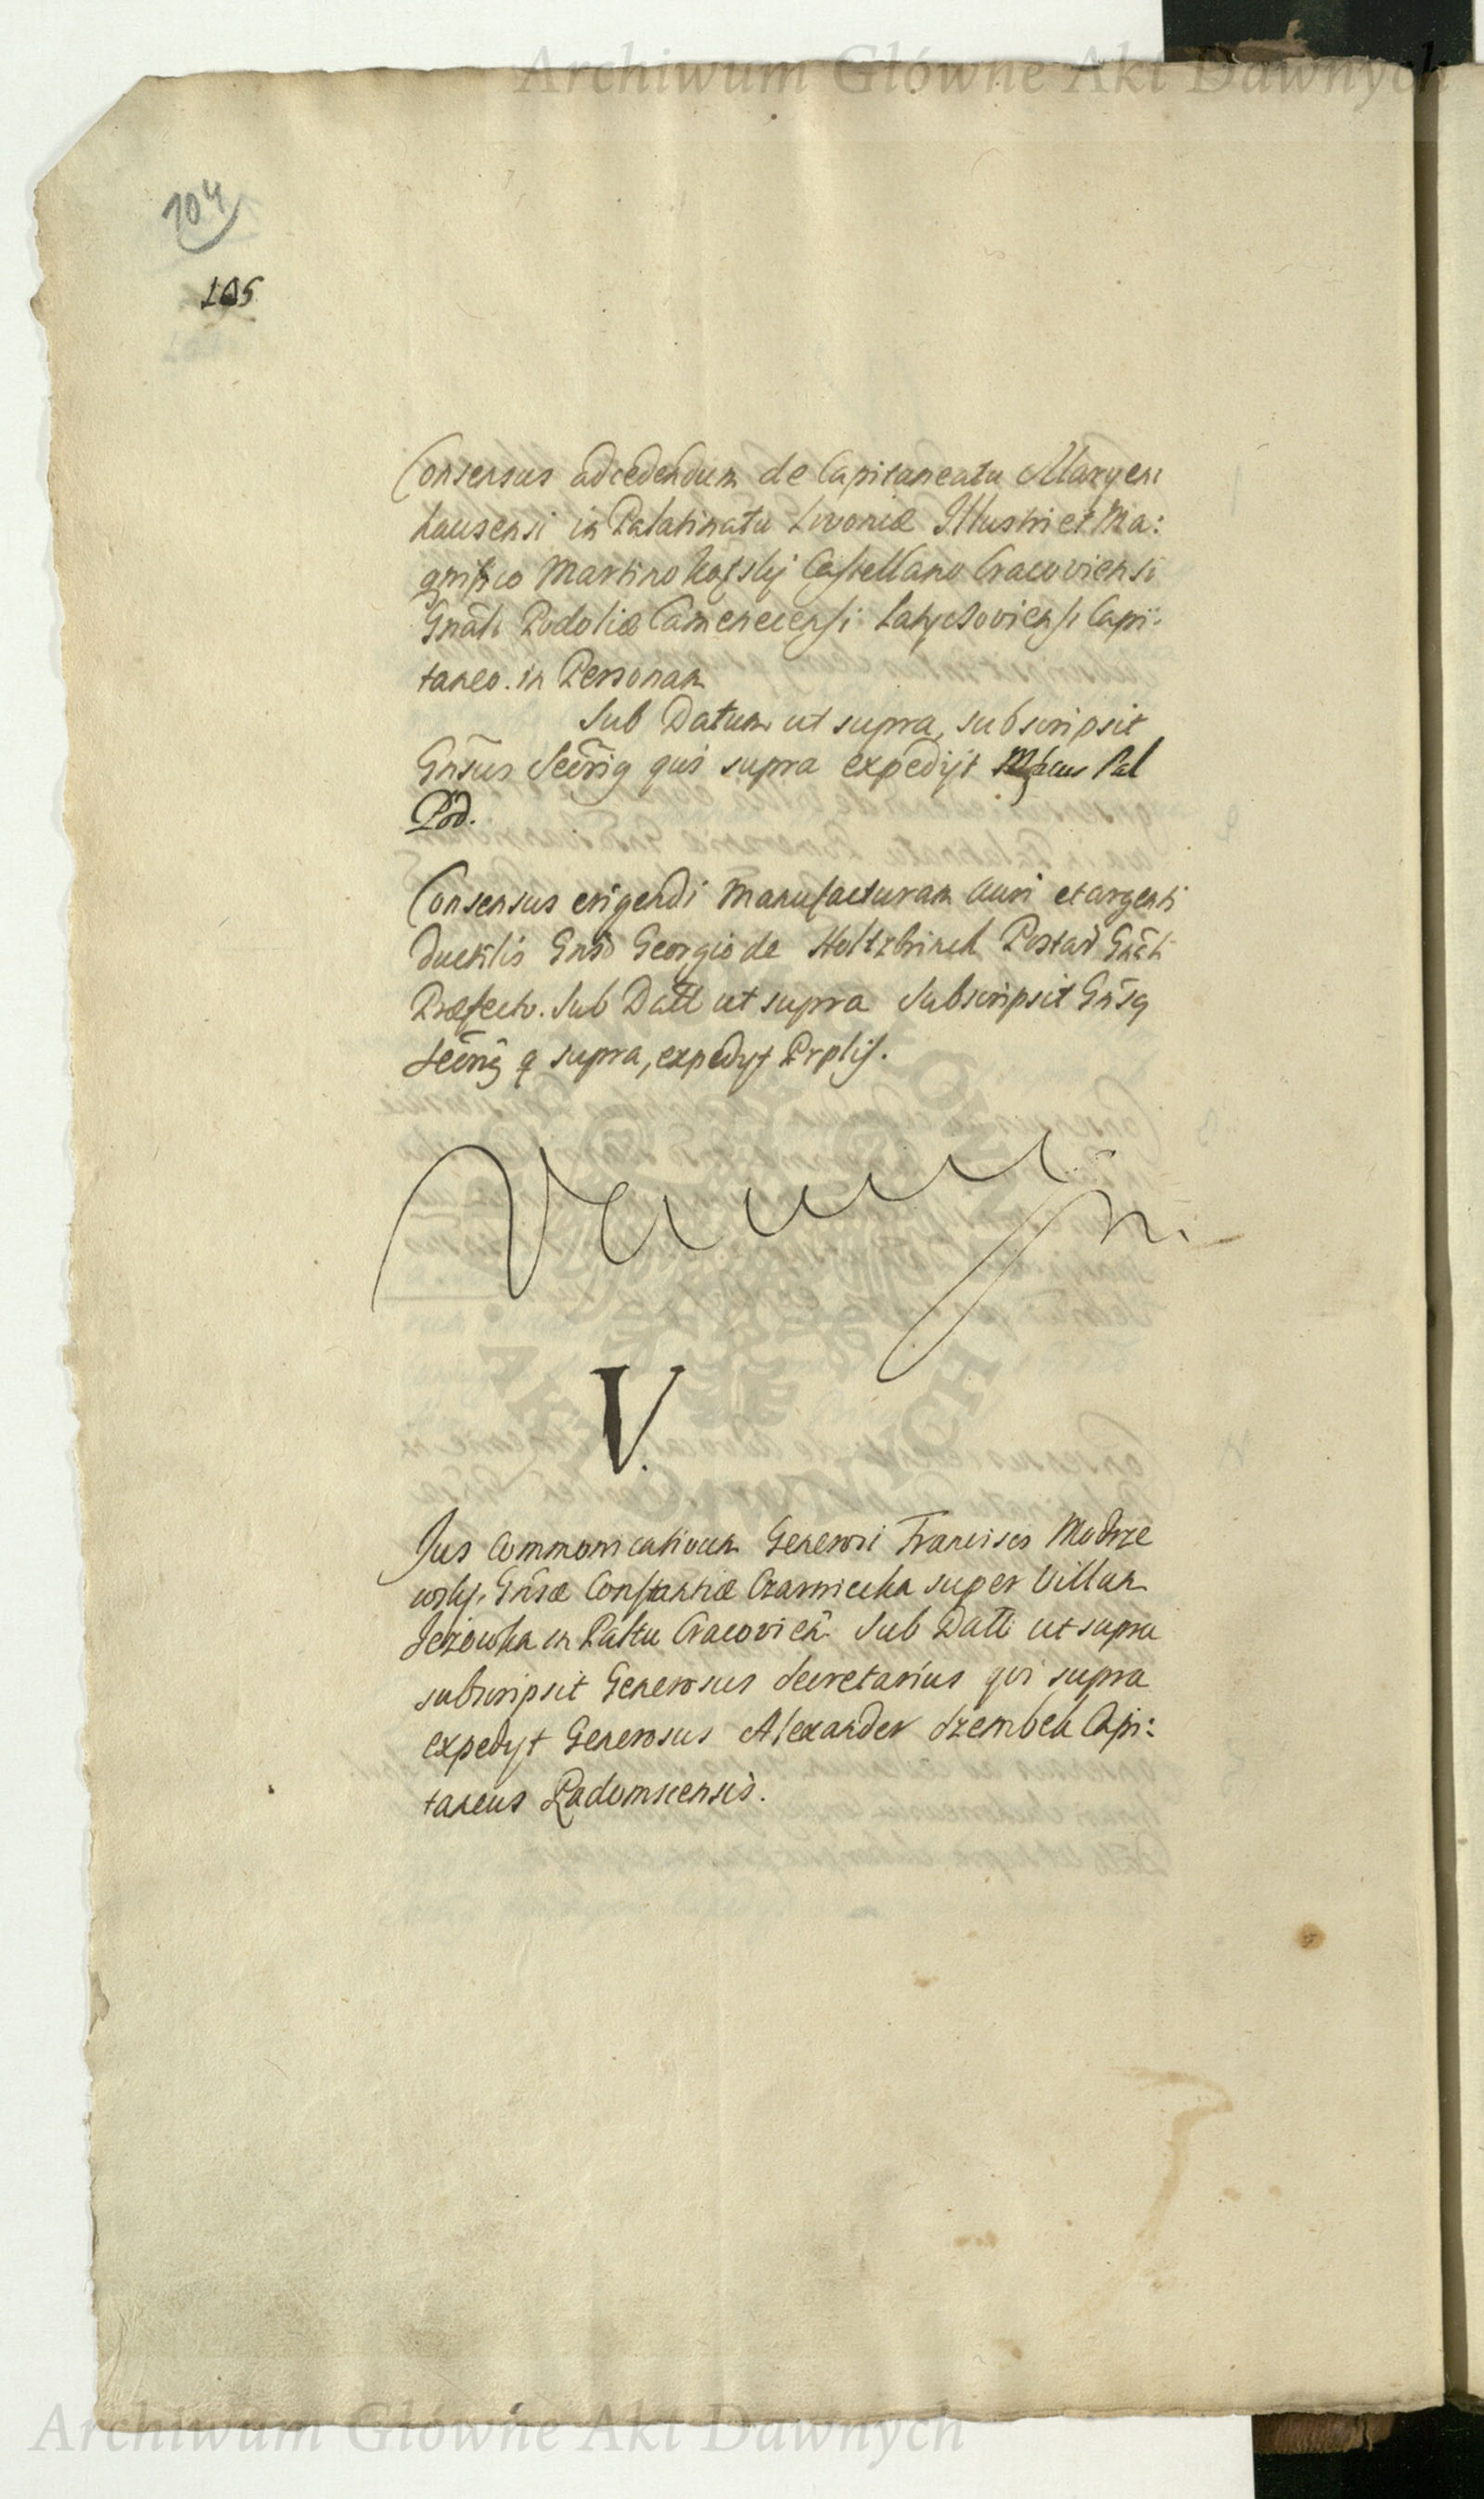 Archiwum Główne Akt Dawnych
104
105
Consensus ad cedendum de Capitaneatu Maryen
hausensi in Palatinatu Livoniæ Illustri et Ma:
gnifico Martino Kątskj Castellano Cracoviensi
Gnāli Podoliæ Camenecensi Latyczoviensi Capi:
taneo. in Personam
Sub Datum ut supra, subscripsit
Gnsus Secrig qui supra expedijt Mcus Pal
Pod.
Consensus erigendi Manufacturam Auri et argenti
ductilis Gnso Georgio de Holtzbrinck Postar Gnāli
Præfecto. Sub Datt ut supra Subscripsit Gnsq
Secrig q supra, expedyt Prplis.
V
Jus Communicativum Generosi Francisci Modrze
wskj, Gnsæ Constantiæ Czarniecka super Villam
Jeżowka in Pałtu Cracovien Sub Datt ut supra
subscripsit Generosus Secretarius qui supra
expedyt Generosus Alexander Szembek Capi:
taneus Radomscensis.
Archiwum Główne Akt Dawnych